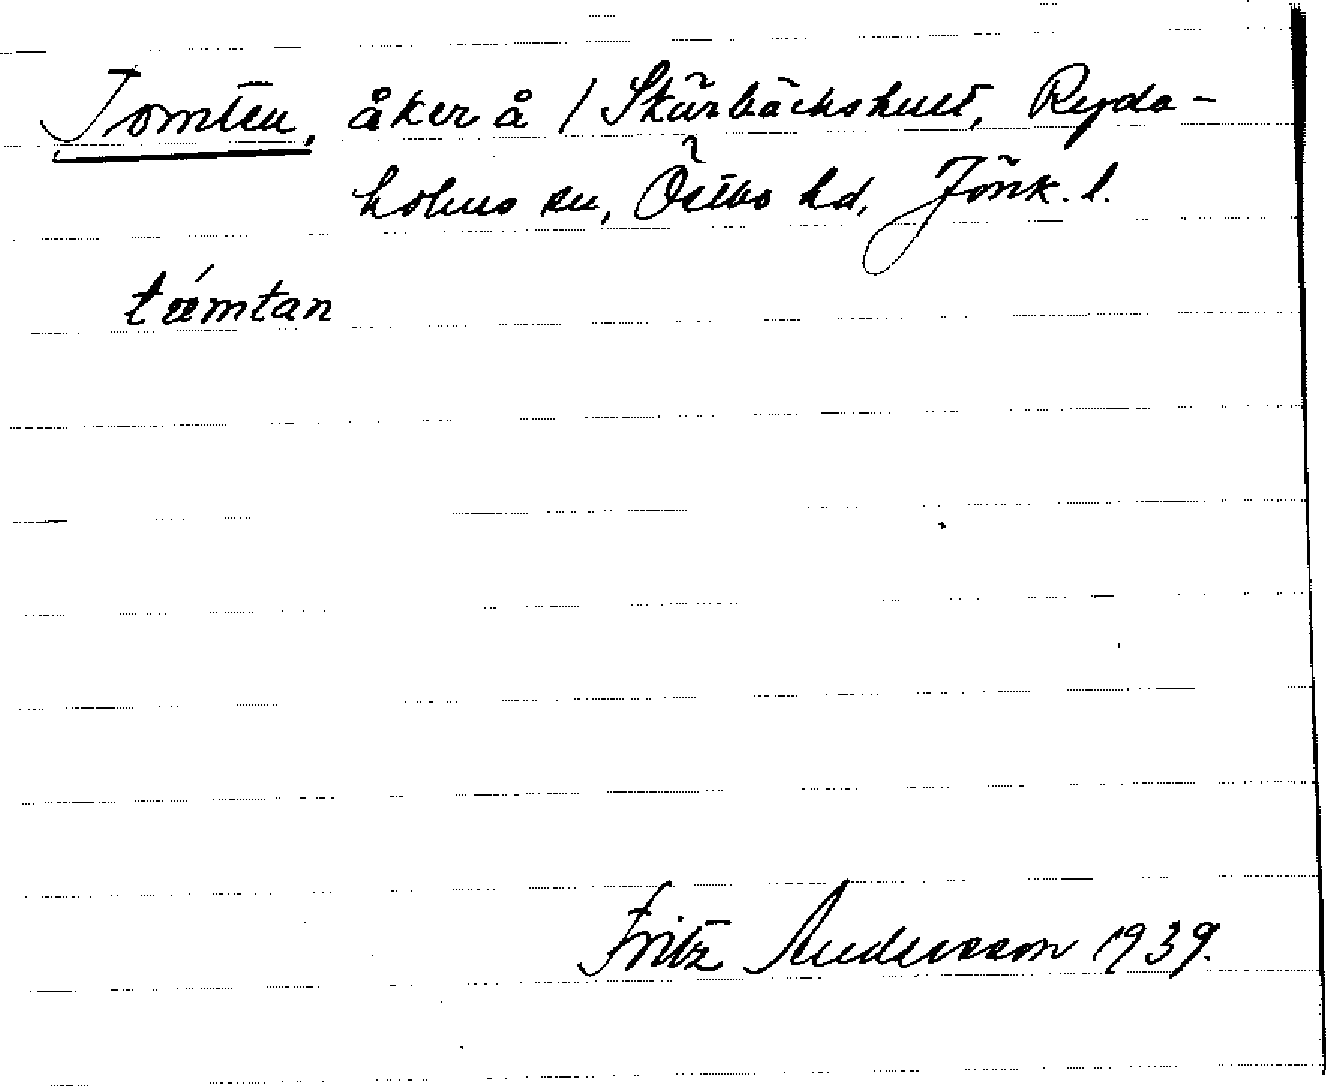 Tomten, åker å / Skärbäckshult, Ryda-
holms sn, Östbo hd, Jönk. l.
tómtan
Fritz Andersson 1939.